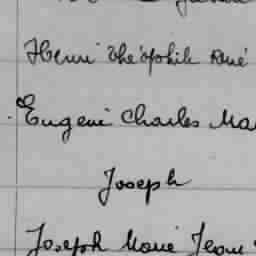 Henri Théophile René
Eugène Charles Ma
Joseph
Joseph Marie Jean